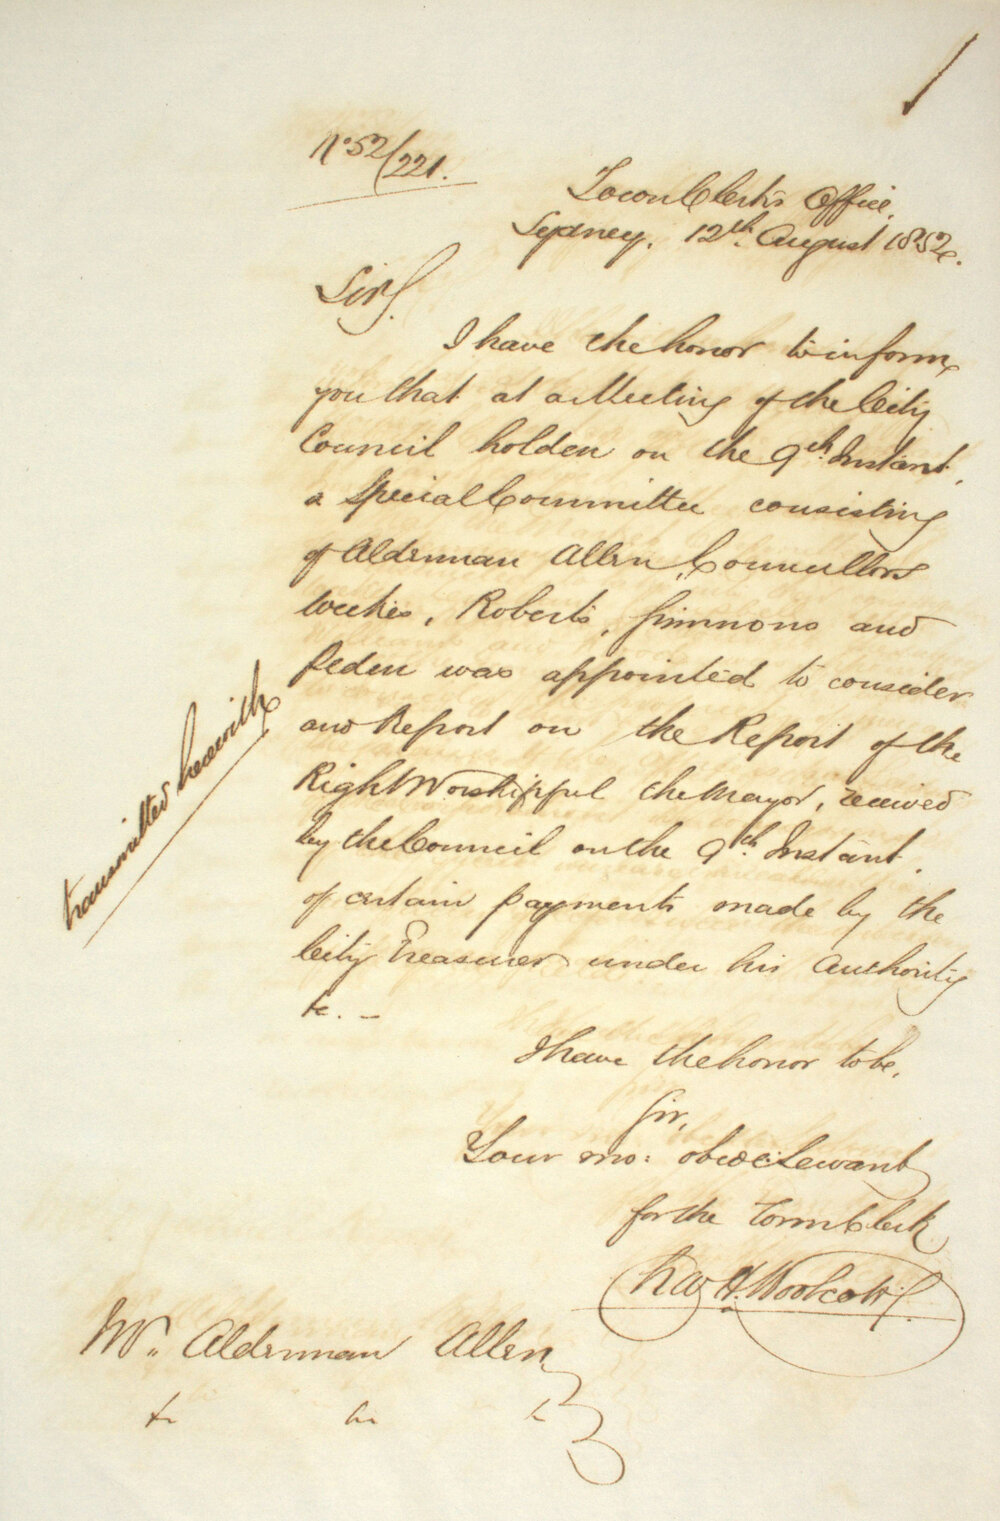 No 52/221.
Town Clerk's Office,
Sydney, 12th August 1852.
Sir,
I have the honor to inform
you that at a Meeting of the City
Council holden on the 9th Instant,
a Special Committee consisting
of Alderman Allen, Councillors
Weekes, Roberts, Simmons and
Peden was appointed to consider
and Report on the Report of the
Right Worshipful the Mayor, received
by the Council on the 9th Instant,
of certain payments made by the
City Treasurer under his Authority
&c. –
transmitted herewith
I have the honor to be,
Sir,
Your mo: obedt Servant
for the Town Clerk
Chas H. Woolcott
Mr. Alderman Allen
&c &c &c